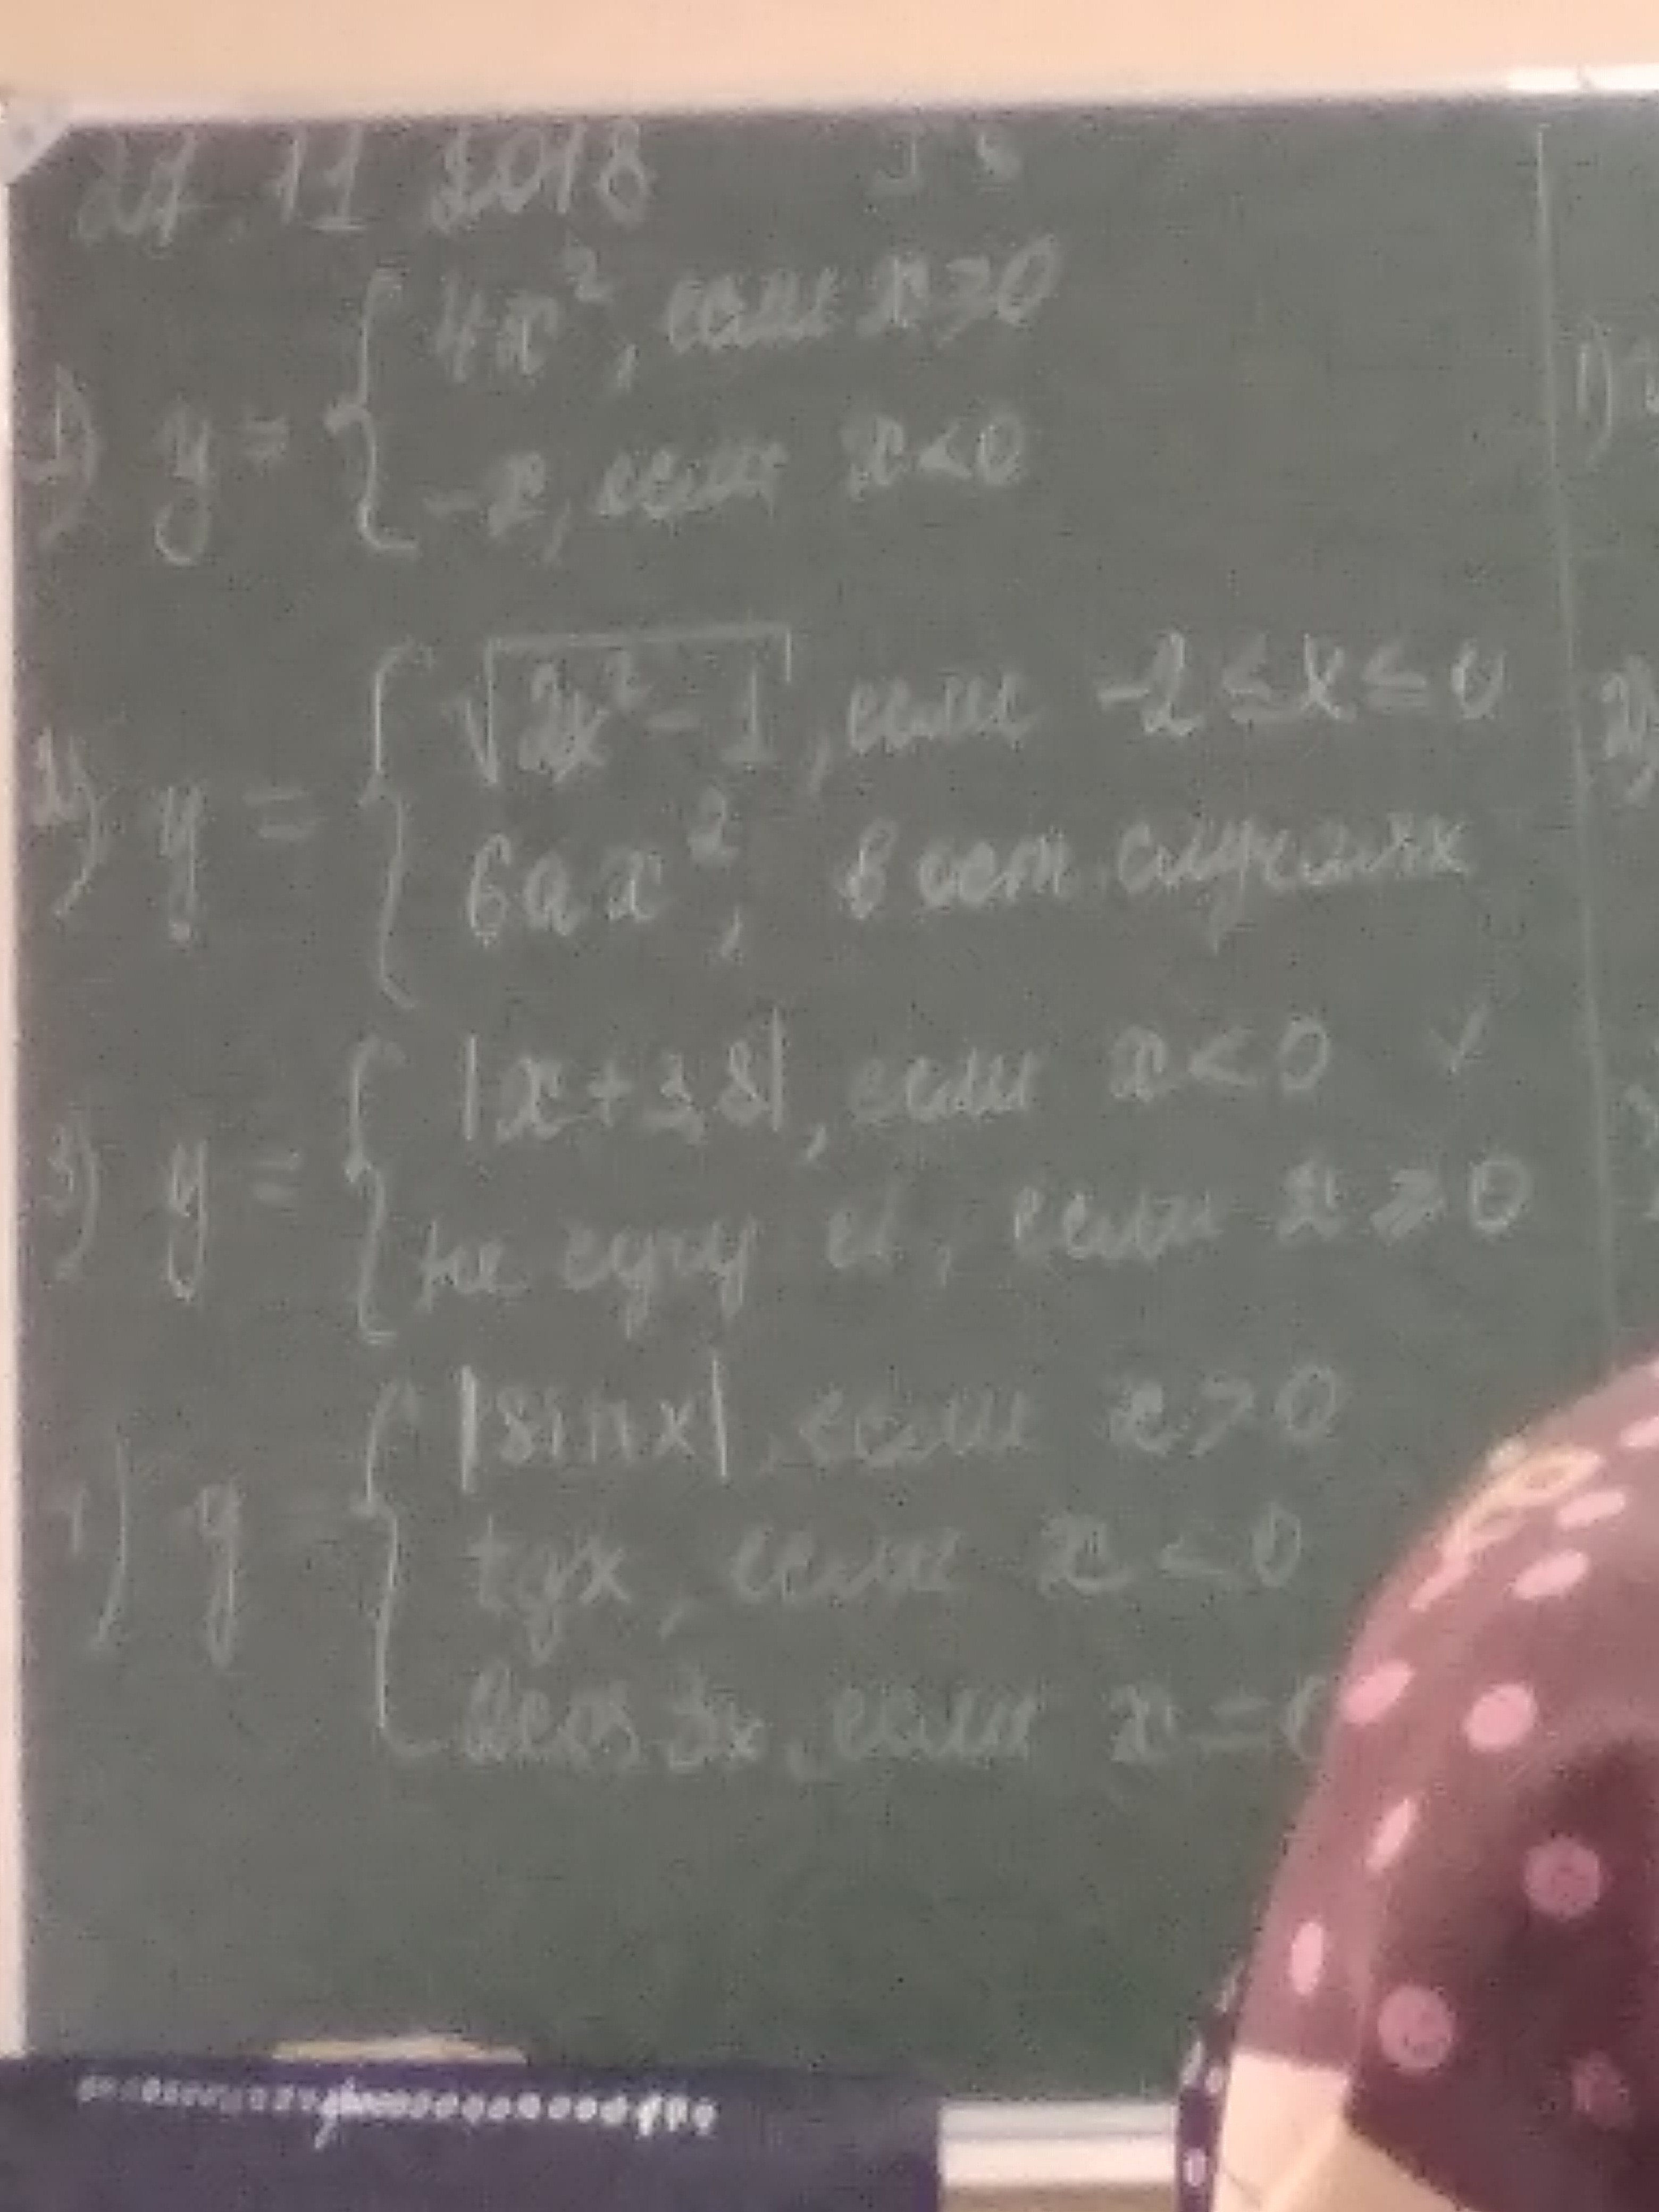 27.11 2018
1) y = { 4x², если x≥0
-x, если x<0
2) y = { √2x²-1, если -2≤x≤0
6ax², в ост. случаях
3) y = { |x+3,8|, если x<0
не сущ , если x≥0
y = { |sinx|, если x>0
tgx, если x<0
2cos3x, если x=0
1)
2)